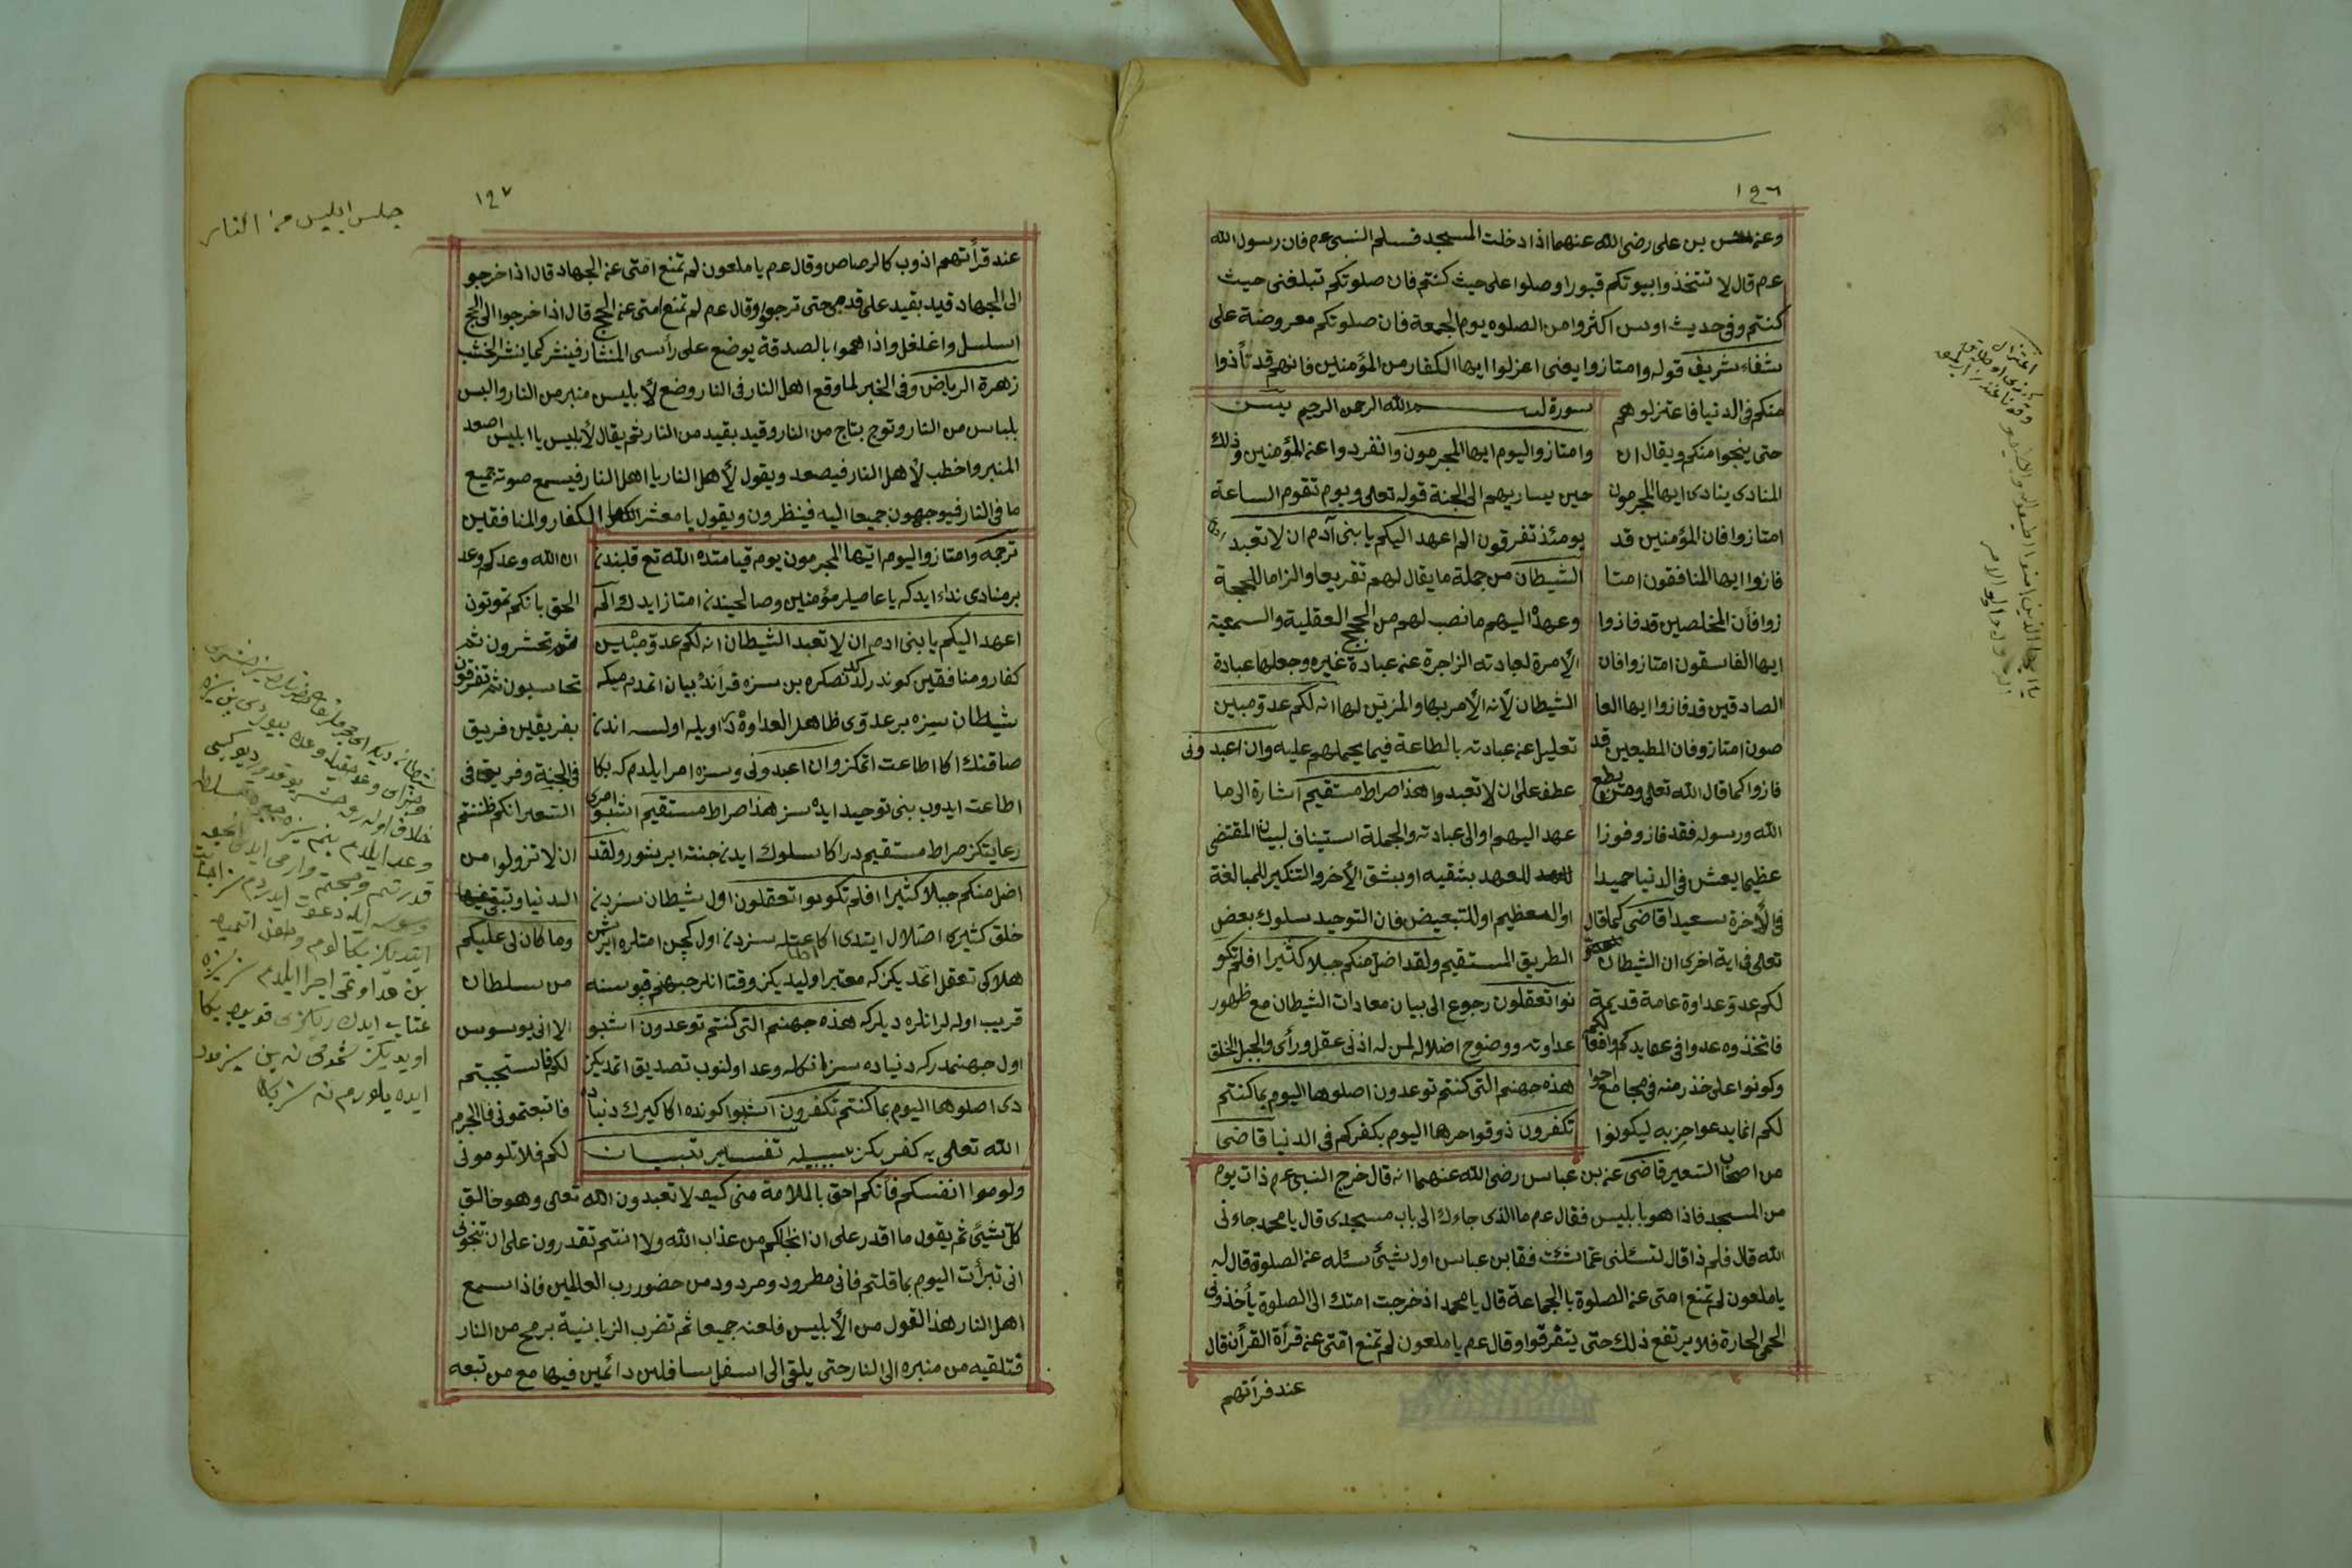 ١٩٦
وعنه حسن بن على رضى الله عنهما اذا دخلت المسجد فسلم النبى عم فان رسول الله
عم قال لا تتخذوا بيوتكم قبورا وصلوا على حيث كنتم فان صلوتكم تبلغنى حيث
كنتم وفى حديث اوس اكثروا من الصلوه يوم الجمعة فان صلوتكم معروضة على
شفاء شريف قوله وامتازوا يعنى اعزلوا ايها الكفار من المؤمنين فانهم قد تأذوا
منكم فى الدنيا فاعتزلوهم
حتى ينجوا منكم ويقال ان
المنادى ينادى ايها المجرمون
امتازوا فان المؤمنين قد
فازوا ايها المنافقون امتا
زوا فأن المخلصين قد فازوا
ايها الفاسقون امتازوا فان
الصادقين قد فازوا ايها العا
صون امتازوا فان المطيعين قد
فازوا كما قال الله تعالى ومن يطع
الله ورسوله فقد فاز وفوزا
عظيما يعش فى الدنيا حميدا
فى الأخرة سعيدا قاضى كما قال
تعالى فى اية اخرى ان الشيطان
لكم عدو عداوة عامة قديمة
فاتخذوه عدوا فى عقايدكم وافعالكم
وكونوا على حذر منه فى مجامع احوا
لكم انما يدعوا حزبه ليكونوا
سورة بسم الله الرحمن الرحيم يس
وامتازوا اليوم ايها المجرمون وانفردوا عن المؤمنين وذلك
حين يسار بهم الى الجنة قوله تعالى ويوم تقوم الساعة
يومئذ تفرقون الم اعهد اليكم يا بنى آدم ان لا تعبد
الشيطان من جملة ما يقال لهم تقريعا والزاما للحجة
وعهده اليهم ما نصب لهم من الحجج العقلية والسمعية
الأمرة لعبادته الزاجرة عن عبادة غيره وجعلها عبادة
الشيطان لأنه الأمر بها والمزين لها انه لكم عدو مبين
تعليل عن عبادته بالطاعة فيما يحملهم عليه وان اعبدونى
عطف على ان لا تعبدوا هذا صراط مستقيم اشارة الى ما
عهد اليهم او الى عبادته والجملة استيناف لبيان المقتضى
للعهد بشقيه او بشق الأخر والتنكير للمبالغة
او المعظيم او للتبعيض فان التوحيد سلوك بعض
الطريق المستقيم ولقد اضل منكم جبلا كثيرا افلم تكو
نوا تعقلون رجوع الى بيان معادات الشيطان مع ظهور
عداوته ووضوح اضلاله لمن له ادنى عقل ورأى والجبل الخلق
هذه جهنم التى كنتم توعدون اصلوها اليوم بما كنتم
تكفرون ذوقوا حرها اليوم بكفركم فى الدنيا قاضى
من اصحاب السعير قاضى عن بن عباس رضى الله عنهما انه قال خرج النبى عم ذات يوم
من المسجد فاذا هو بابليس فقال عم ما الذى جاءك الى باب مسجدى قال يا محمد جاءنى
الله قال فلم ذا قال لتسئلنى عما شئت فقا بن عباس اول شيئ سئله عن الصلوة قال له
يا ملعون لم تمنع امتى عن الصلوة با الجماعة قال يا محمد اذ خرجت امتك الى الصلوة يأخذونى
الحمى الحارة فلا يرتفع ذلك حتى يتفرقوا وقال عم يا ملعون لم تمنع امتى عن قرأة القرأن قال
عند قرأتهم
يا ايها الذين امنوا اطيعوا الله واطيعوا
الرسول واولو الامر
١٩٧
جلس ابليس من النار
عند قرأتهم اذوب كالرصاص وقال عم يا ملعون لم تمنع امتى عن الجهاد قال اذا خرجو
الى الجهاد قيد بقيد على قدمى حتى ترجوا وقال عم لم تمنع امتى عن الحج قال اذا خرجوا الى الحج
اسلسل واغلغل واذا هموا بالصدقة يوضع على رأسى المنشار فينشر كما ينشر الخشب
زهرة الرياض وفى الخبر لما وقع اهل النار فى النار وضع لأبليس منبر من النار والبس
بلباس من النار وتوج بتاج من النار وقيد بقيد من النار ثم يقال لأبليس يا ابليس اصعد
المنبر واخطب لأهل النار فيصعد ويقول لأهل النار يا اهل النار فيسمع صوته جميع
ما فى النار فيوجهون جميعا اليه فينظرون ويقول يا معشر الكفار والمنافقين
ترجمه وامتازوا اليوم ايها المجرمون يوم قيامتده الله تع قلبندن
بر منادى نداء ايدكه يا عاصيلر مؤمنين وصالحيندن امتاز ايدك الم
اعهد اليكم يا بنى ادم ان لا تعبد الشيطان انه لكم عدو مبين
كفار ومنافقين كوندركدنصكره بن سزه قرأنده بيان اتمدم ميكه
شيطان سزه بر عدوى ظاهر العداوه در اويله اولسه اندن
صاقنك اكا اطاعت اتمكز وان اعبدونى وسزه امر ايلدم كه بكا
اطاعت ايدوب بنى توحيد ايده سز هذا صراط مستقيم اشبو امرى
رعايتكز صراط مستقيم در اكا سلوك ايدن جنته ايريشور ولقد
اضل منكم جبلا كثيرا افلم تكونوا تعقلون اول شيطان سزدن
خلق كثيرى اضلال ايتدى اكا عتله سزدن اول كچن امتلره ايريشن
هلاكى تعقل اتمديكز كه معتبر اوليديكز وقتا انلر جهنم قپوسنه
قريب اوله لر انلره ديلر كه هذه جهنم التى كنتم توعدون اشبو
اول جهنمدر كه دنياده سزه انكله وعد اولنوب تصديق اتمديكز
دى اصلوها اليوم بما كنتم تكفرون اشبوا كونده اكا كيرك دنياده
الله تعالى يه كفر يكز سببيله تفسير تبيان
ان الله وعدكم وعد
الحق بانكم تموتون
ثم تحشرون ثم
تحاسبون ثم تفرقون
بفريقين فريق
فى الجنة وفريق فى
السعير انكم ظننتم
ان لا تزولوا من
الدنيا وتبقى فيها
وما كان لى عليكم
من سلطان
الا انى يوسوس
لكم فاستجبتم
فاتبعتمونى فالجرم
لكم فلا تلومونى
ولوموا انفسكم فأنكم احق بالملامة منى كيف لا تعبدون الله تعالى وهو خالق
كل شيئ ثم يقول ما اقدر على ان انجاكم من عذاب الله ولا انتم تقدرون على ان تنجونى
انى تبرأت اليوم بما قلتم فانى مطرود ومردود من حضور رب العالمين فاذا سمع
اهل النار هذا القول من الأبليس فلعنه جميعا ثم تضرب الزبانية برمح من النار
فتلقيه من منبره الى النار حتى يلقى الى اسفل سافلين دائمين فيها مع من تبعه